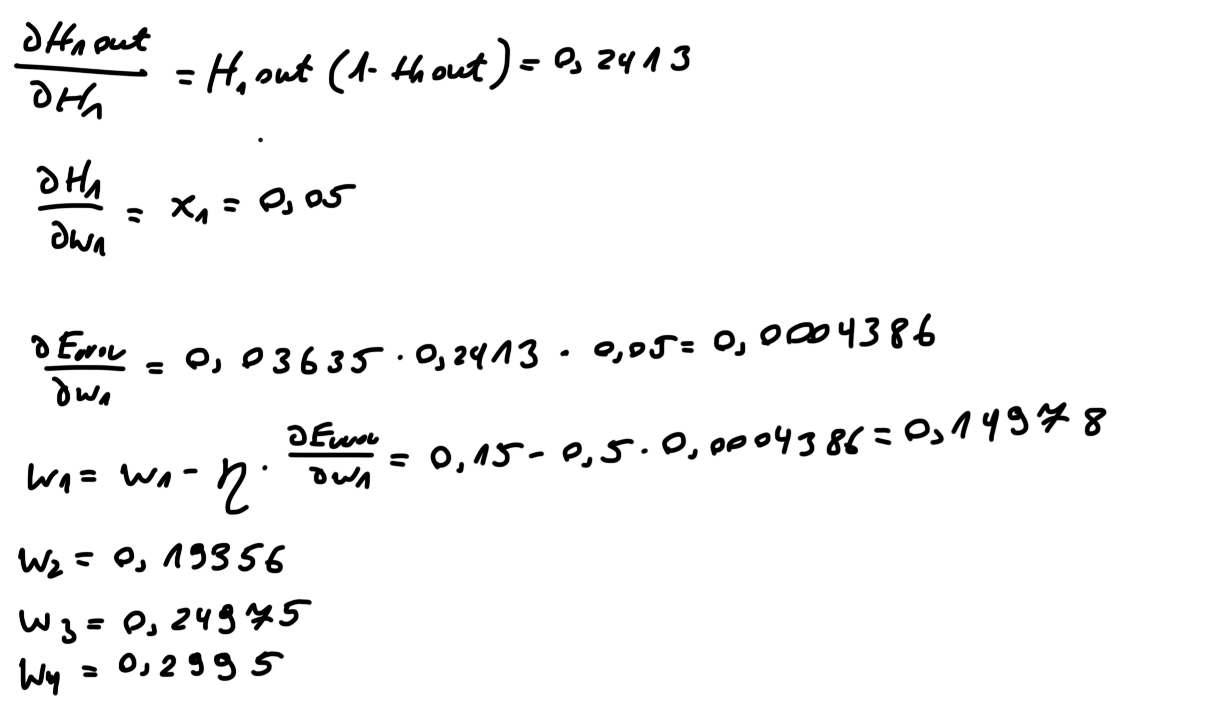 ∂H₁out/∂H₁ = H₁out (1- H₁out) = 0,2413
∂H₁/∂w₁ = x₁ = 0,05
∂Error/∂w₁ = 0,03635 · 0,2413 · 0,05 = 0,0004386
w₁ = w₁ - η · ∂Error/∂w₁ = 0,15 - 0,5 · 0,0004386 = 0,14978
w₂ = 0,19956
w₃ = 0,24975
w₄ = 0,2995